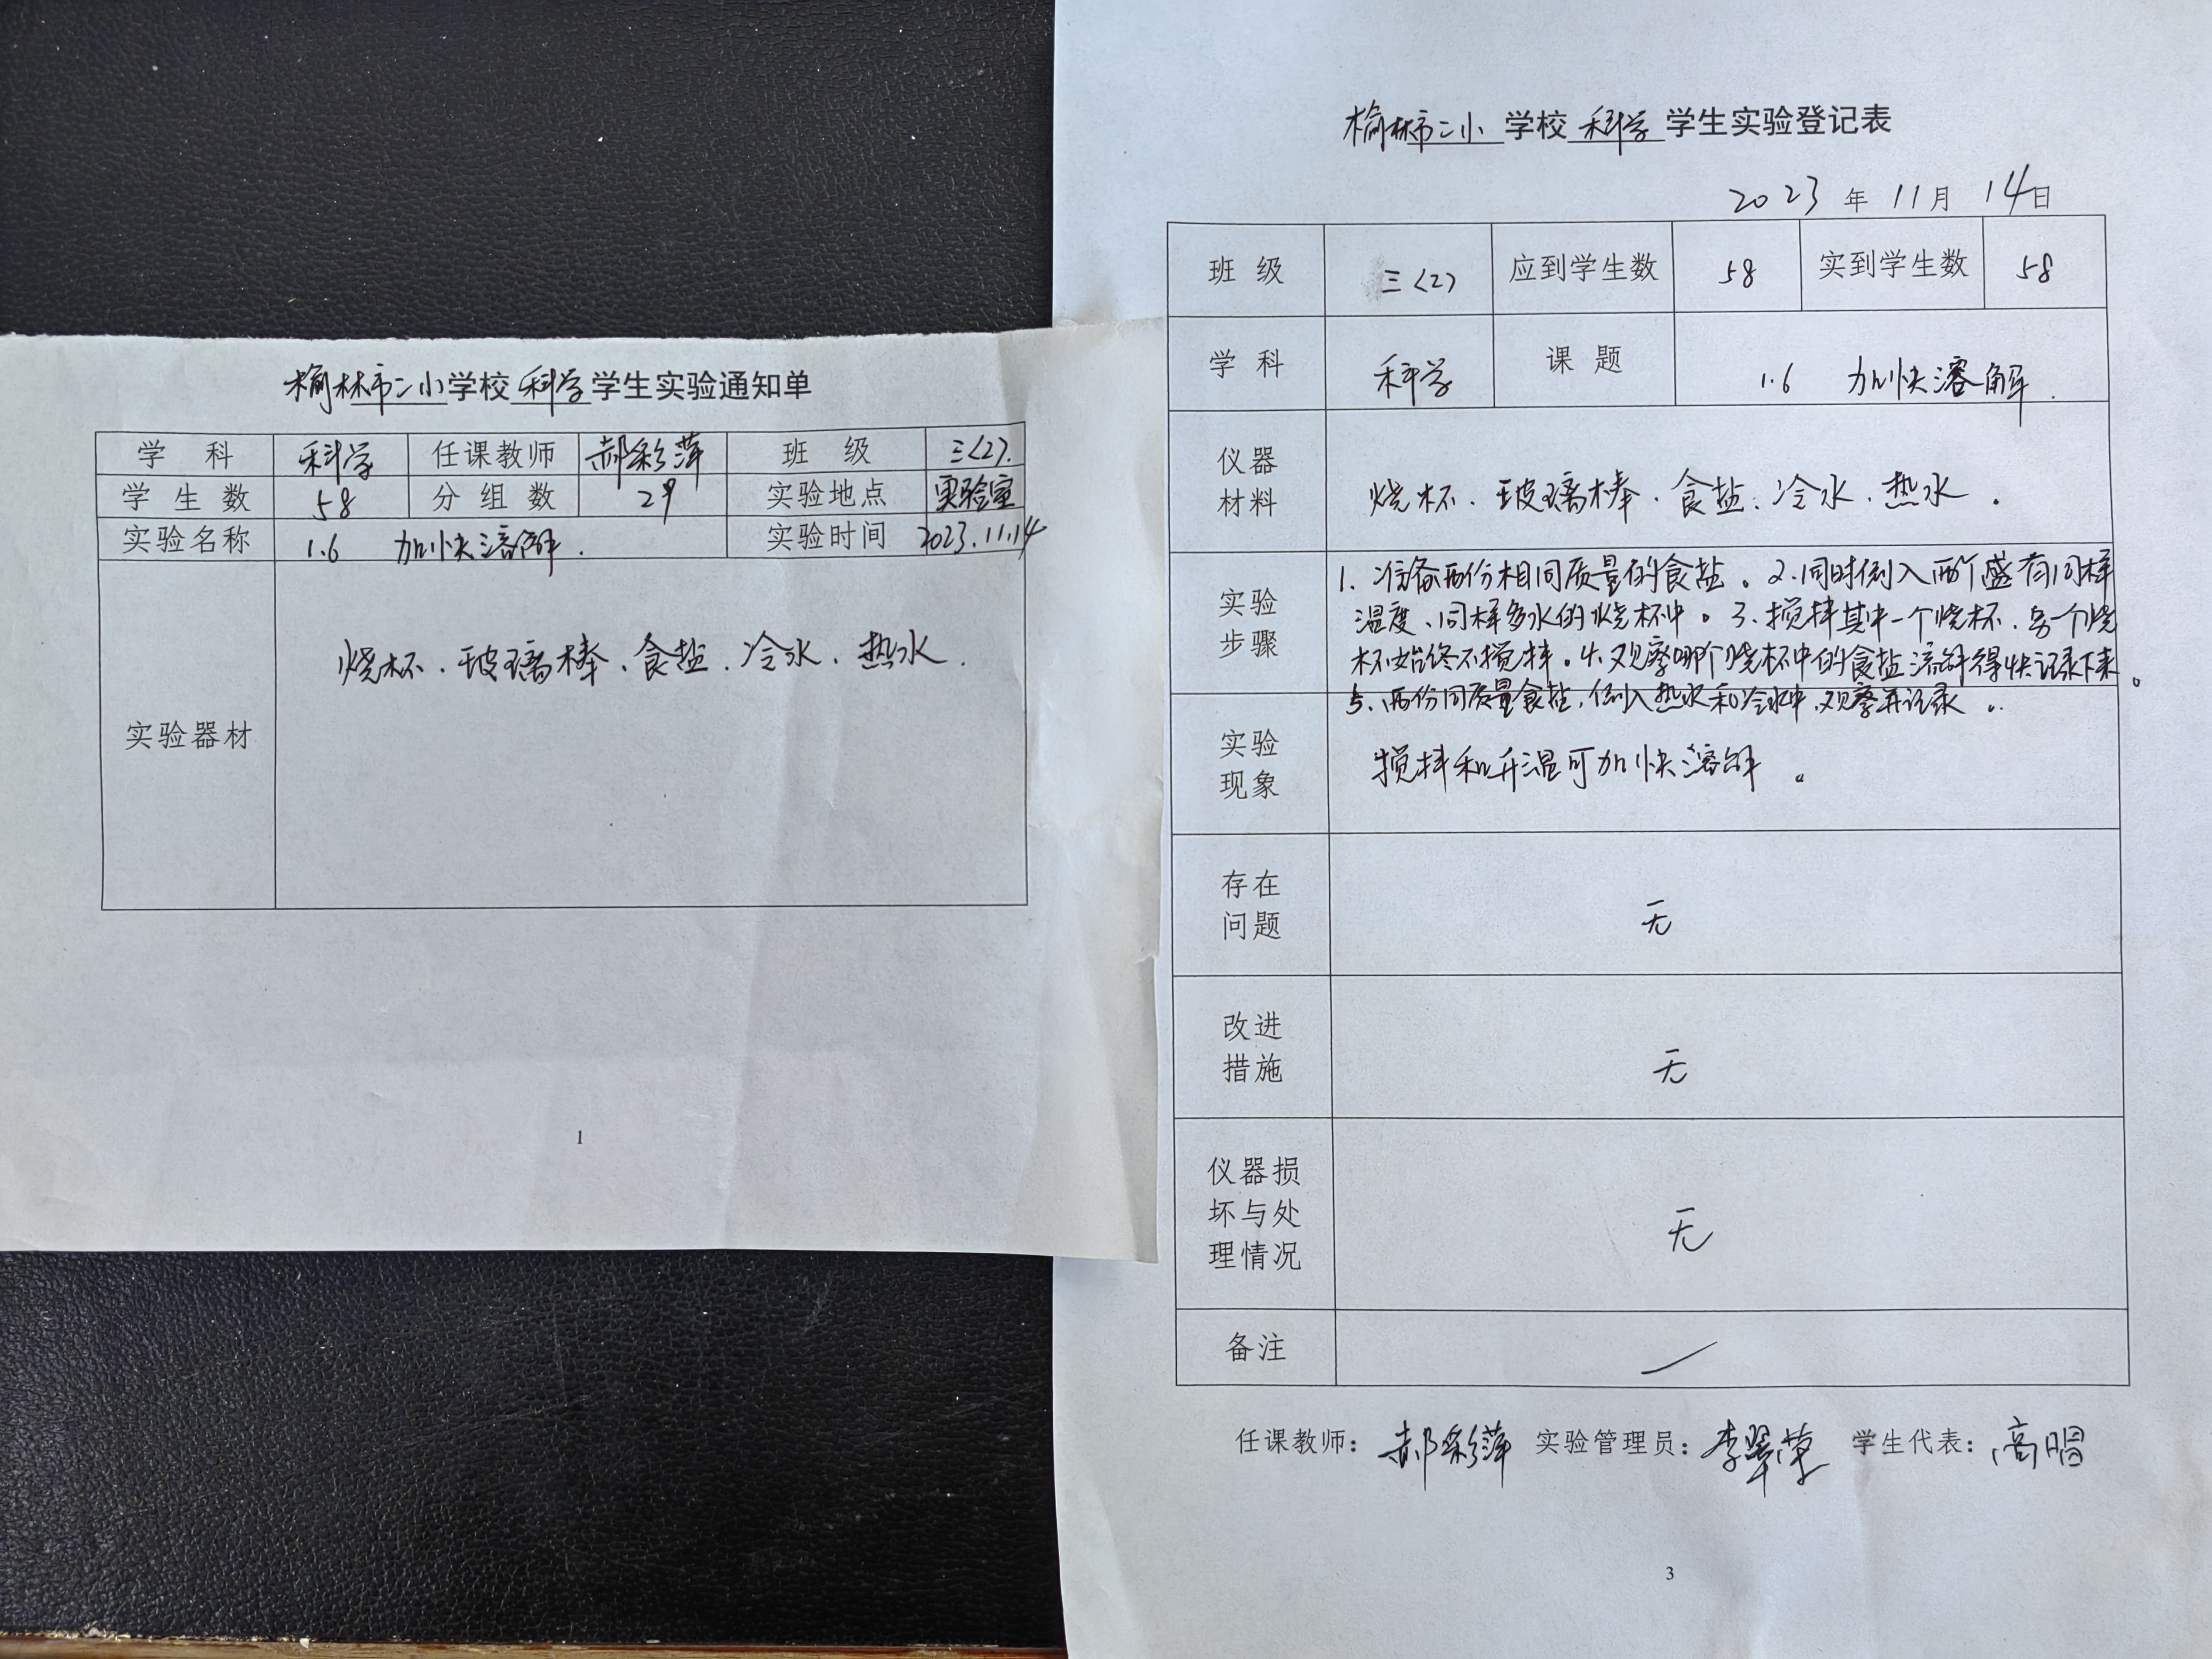 榆林市二小学校科学学生实验通知单
学 科 科学 任课教师 郝彩萍 班 级 三<2>.
学生数 58 分组数 29 实验地点 实验室
实验名称 1.6 加快溶解. 实验时间 2023.11.14
实验器材 烧杯、玻璃棒、食盐、冷水、热水.
1
榆林市二小学校科学学生实验登记表
2023年11月14日
班 级 三<2> 应到学生数 58 实到学生数 58
学 科 科学 课 题 1.6 加快溶解.
仪器
材料
烧杯、玻璃棒、食盐、冷水、热水。
实验
步骤
1. 准备两份相同质量的食盐。2.同时倒入两个盛有同样
温度、同样多水的烧杯中。3.搅拌其中一个烧杯、另一个烧
杯始终不搅拌。4.观察哪个烧杯中的食盐溶解得快记录下来。
5.两份同质量食盐,倒入热水和冷水中,观察并记录。
实验
现象
搅拌和升温可加快溶解。
存在
问题
无
改进
措施
无
仪器损
坏与处
理情况
无
备注
任课教师:郝彩萍 实验管理员:李翠 学生代表:高
3